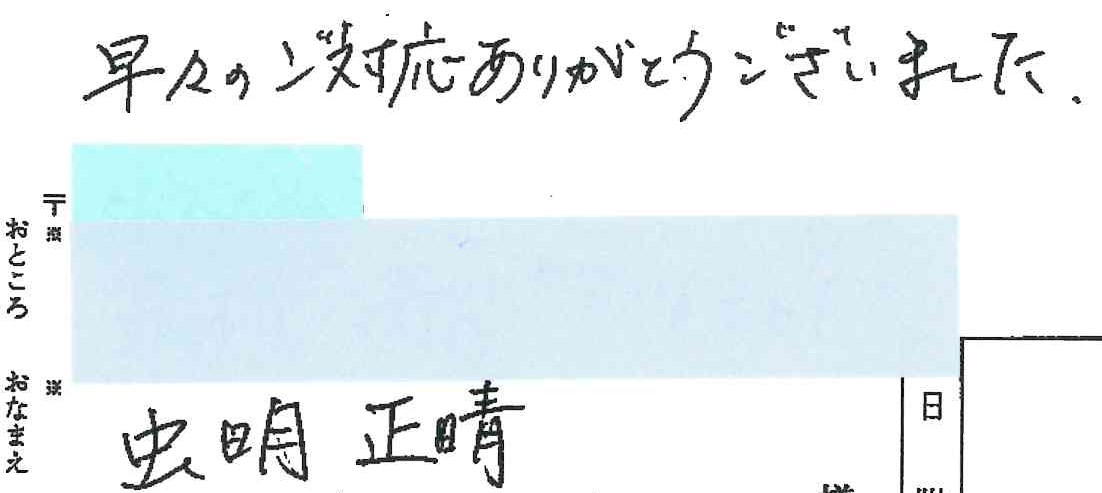 早々のご対応ありがとうございました.
〒
※
おところ
※
おなまえ
虫明 正晴
日